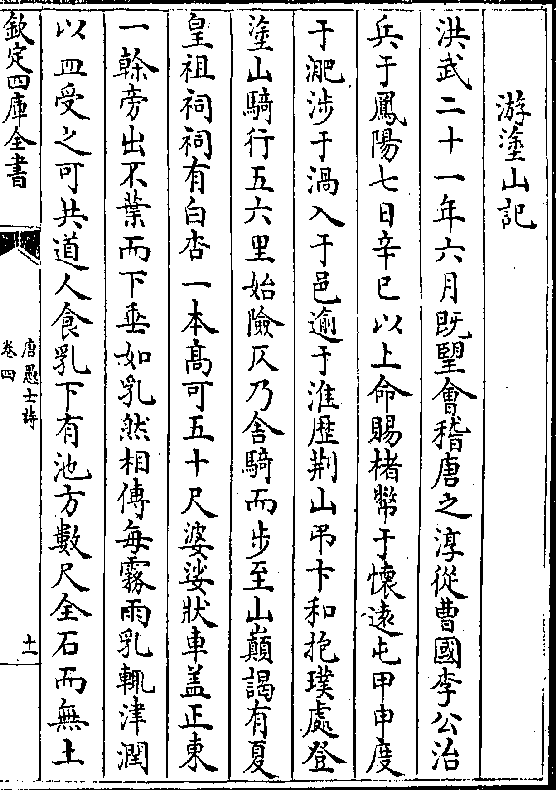 游塗山記
洪武二十一年六月既望會稽唐之淳從曹國李公治
兵于鳳陽七日辛巳以上命賜楮幣于懷遠屯甲申度
于淝涉于渦入于邑逾于淮歴荆山弔卞和抱璞處登
塗山騎行五六里始險仄乃舎騎而步至山巔謁有夏
皇祖祠祠有白杏一本髙可五十尺婆娑狀車盖正東
一榦旁出不葉而下垂如乳然相傳毎霧雨乳輒津潤
以皿受之可共道人食乳下有池方數尺全石而無土
欽定四庫全書
唐愚士詩
卷四
十一